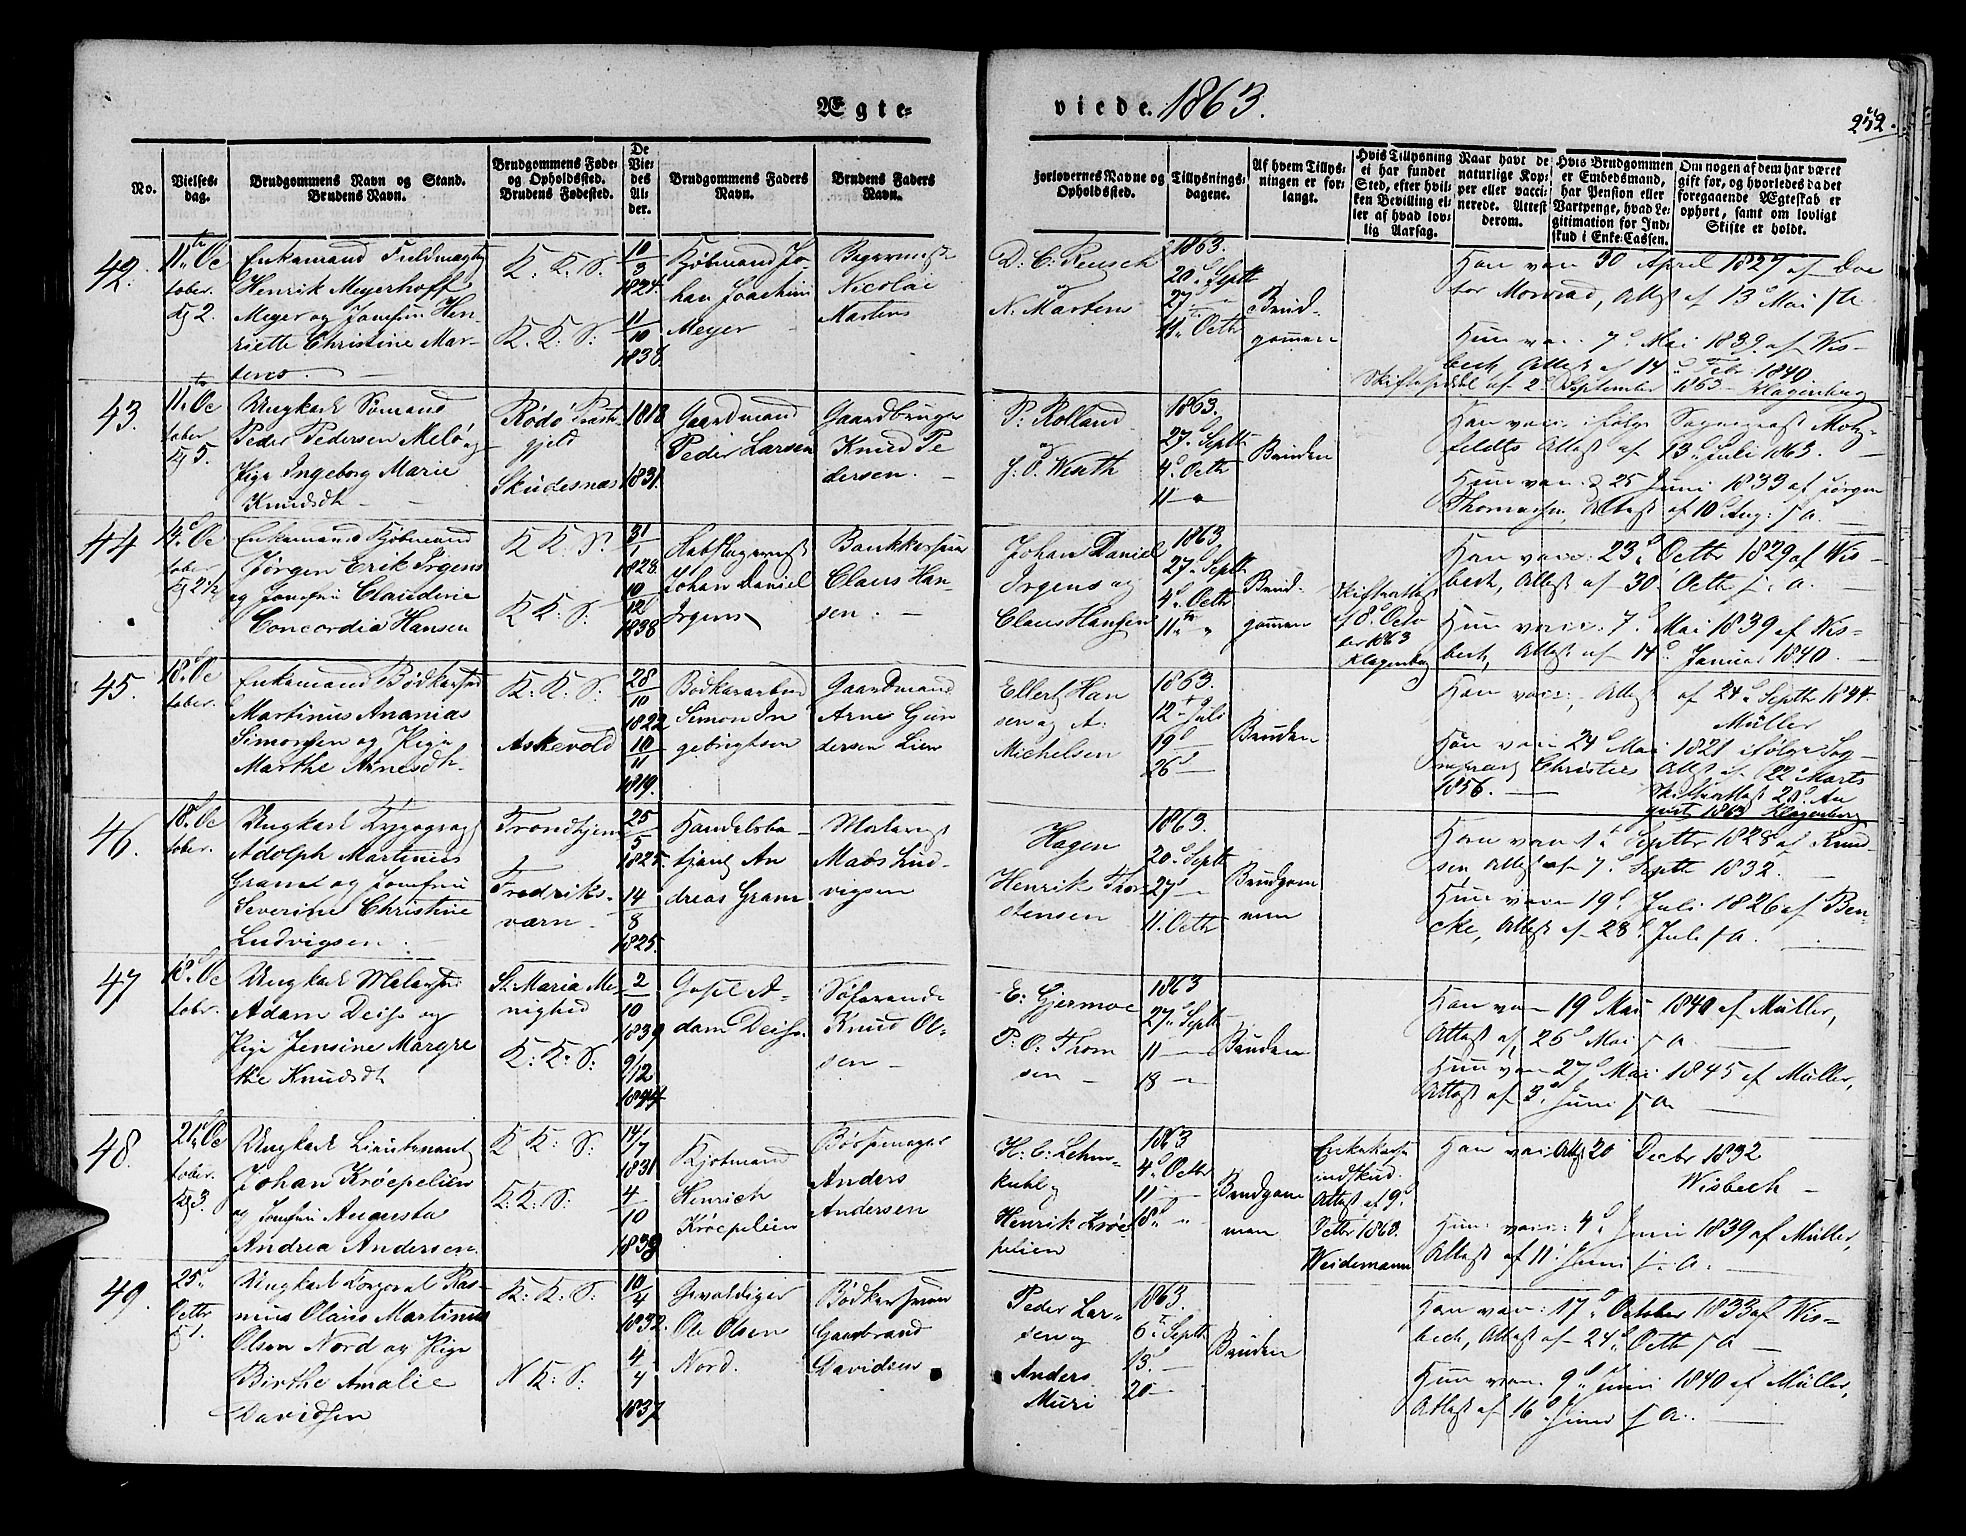 Ægte-
viede. 1863.
252.
No.
Vielses-
dag.
Brudgommens Navn og Stand.
Brudens Navn.
Brudgommens Føde-
og Opholdssted.
Brudens Fødested.
De
Vie-
des
Al-
der.
Brudgommens Faders
Navn.
Brudens Faders
Navn.
Forlovernes Navne og
Opholdssted.
Tillysnings-
dagene.
Af hvem Tillys-
ningen er for-
langt.
Hvis Tillysning
ei har fundet
Sted, efter hvil-
ken Bevilling el-
ler af hvad lov-
lig Aarsag.
Naar havt de
naturlige Kop-
per eller vacci-
nerede. Attest
derom.
Hvis Brudgommen
er Embedsmand,
har Pension eller
Vartpenge, hvad Le-
gitimation for Ind-
skud i Enke-Cassen.
Om nogen af dem har været
gift før, og hvorledes da det
foregaaende Ægteskab er
ophørt, samt om lovligt
Skifte er holdt.
42.
11te Oc
tober
Kl 2.
Enkemand
Henrik Meyerhoff
Meyer og Jomfru Hen-
riette Christine Mar-
tens. —
K: K: S:
K: K: S:
10
3
1824.
11
10
1838.
Kjøbmand Jo-
han Joachim
Meyer
Bagermest
Nicolai
Martens
D: C: Reusch
og
N. Martens
1863.
20d Septb
27 —
11te Octb
Brud-
gomen
Han vac: 30 April 1827 af Doc
tor Monrad, Attest af 13d Mai s. a.
Hun vac: 7d Mai 1839 af Wis-
bech, Attest af 14d Febr 1840
Skifteseddel af 2d September 1863 Klagenberg
43.
11te Oc
tober
Kl 5.
Ungkarl Sømand
Peder Pedersen Melø og
Pige Ingeborg Marie
Knudsdt —
Rødø Præste-
gjeld
Skudesnæs
1818
1831.
Gaardmand
Peder Larsen
Gaardbruger
Knud Pe
dersen. —
P: Rolland
og
J. O. Werth
1863.
27d Septb
4d Octb
11 "
Bruden
Han vac: ifølge Sognepræst
Attest af 13d Juli 1863. —
Hun vac: d 25 Juni 1833 af Jørgen
Thomassen, Attest af 10d Aug: s. a. —
44
14d Oc
tober
Kl 2½
Enkemand Kjøbmand
Jørgen Erik Irgens
og Jomfru Claudine
Concordia Hansen
K K: S:
K K: S:
31
1
1828.
10
12
1838
Johan Daniel
Irgens
Claus Han-
sen. —
Johan Daniel
Irgens og
Claus Hansen
1863
27d Septb
4d Octb
11te "
Brud-
gomen
Skifteattest
af 8d Octo
ber 1863
Klagenberg
Han vac: 23d Octbr 1829 af Wis-
bech, Attest af 30d Octb s. a.
Hun vac: 7d Mai 1839 af Wis-
bech, Attest af 14d Januar 1840. —
45.
18d Oc
tober.
Enkemand Bødkersvd
Martinus Ananias
Simonsen og Pige
Marthe Arnesdt.
K: K: S:
Askevold
28
10
1822
10
11
1819.
Bødkerarbeid
Simon In
gebrigtsen
Gaardmand
Arne Gun
dersen Lien
Ellert Han
sen og A.
Michelsen
1863.
12te Juli
19d —
26d —
Bruden
Han vac:, Attest af 24d Septbr 1844.
Müller
Hun vac: 24d Mai 1821 ifølge Sog-
nepræst Christies Attest af 22d Marts
1856. —
Skifteattest 28d Au
gust 1863 Klagenberg
46.
18d Oc
tober.
Ungkarl Typograph
Adolph Martinus
Gram og Jomfru
Severine Christine
Ludvigsen. —
Trondhjem
Fredriks-
værn —
25
5
1825.
14
8
1825.
Handelsbe-
tjent An
dreas Gram
Malermest
Mads Lud
vigsen
Hagen
Henrik Thor
stensen
1863.
20d Septb
27d —
11. Octb
Brudgom
men
Han vac: 1te Septbr 1828 af Knud
sen, Attest af 7d Septb 1832. —
Hun vac: 19d Juli 1826 af Ben-
cke, Attest af 28d Juli s a. —
47
18d Oc
tober.
Ungkarl Malersvd
Adam Deiss og
Pige Jensine Margre
the Knudsdt
St. Maria Me-
nighed
K: K: S:
2
10
1839
9/12
1844
A-
dam Deiss.
Søfarende
Knud Ol-
sen —
E: Gjermoe
P: O: Thom
sen —
1863
27d Septb
11 —
18 —
Bruden
Han vac 19d Mai 1840 af Müller,
Attest af 26d Mai s a. —
Hun vac: 27d Mai 1845 af Müller,
Attest af 3d Juni s a. —
48.
21d Oc
tober.
Kl 3.
Ungkarl Lieutenant
Johan Krøepelien
og Jomfru Augusta
Andrea Andersen
K K: S:
K: K: S:
14/7
1831
4
10
1838
Kjøbmand
Henrich
Krøepelien
Børsemager
Anders
Andersen
H: C: Lehm-
kuhl og
Henrik Krøe
pelien
1863
4d Octb
11 —
18d "
Brudgom
men
Enkekasse
indskud.
Attest af 9d
Octbr 1860.
Weidemann
Han vac: Att: 20 Decbr 1832
Wisbech —
Hun vac: 4d Juni 1839 af Müller,
Attest af 11d Juni s. a. —
49.
25d
Octbr
Kl 1.
Ungkarl Torgeval Ras-
mus Olaus Martinus
Olsen Nord og Pige
Birthe Amalie
Davidsen
K: K: S:
N K: S:
10
4
1832.
4
4
1837
Gevaldiger
Ole Olsen
Nord.
Bødkersvend
Gaarbrand
Davidsen
Peder Lar-
sen og
Anders
Muri
1863.
6te Septb
13d —
20 —
Bruden
Han vac: 17d October 1833 af Wis-
bech, Attest af 24d Octb s a —
Hun vac: 9d Juni 1840 af Müller,
Attest af 16d Juni s a. —